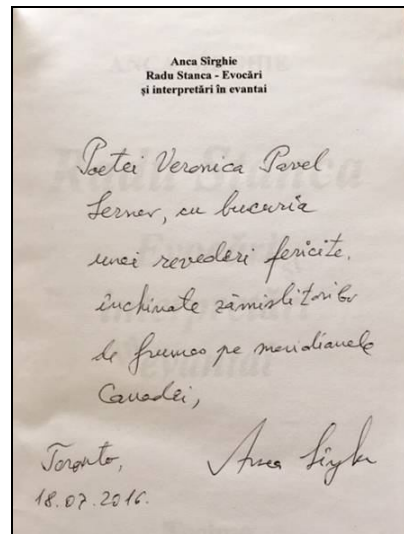 Anca Sîrghie
Radu Stanca - Evocări
și interpretări în evantai
Poetei Veronica Pavel
Lerner, cu bucuria
unei revederi fericite,
închinate zămislitorilor
de frumos pe meridianele
Canadei,
Toronto,
Anca Sîrghie
18.07.2016.